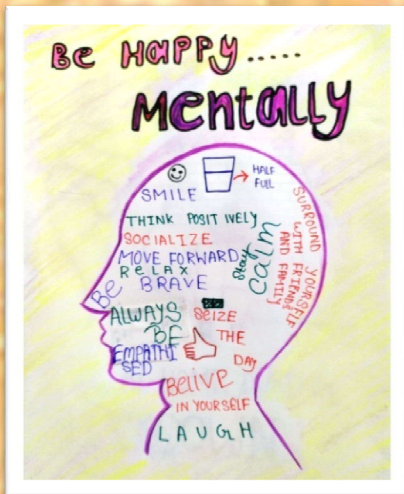 Be Happy.....
Mentally
HALF
FULL
SMILE
THINK POSITIVELY
SOCIALIZE
MOVE FORWARD
RELAX
Be BRAVE
Stay
calm
SURROUND YOURSELF
WITH FRIENDS
AND FAMILY
ALWAYS
BE
EMPATHI
SED
SEIZE
THE
DAY
BELIVE
IN YOURSELF
LAUGH